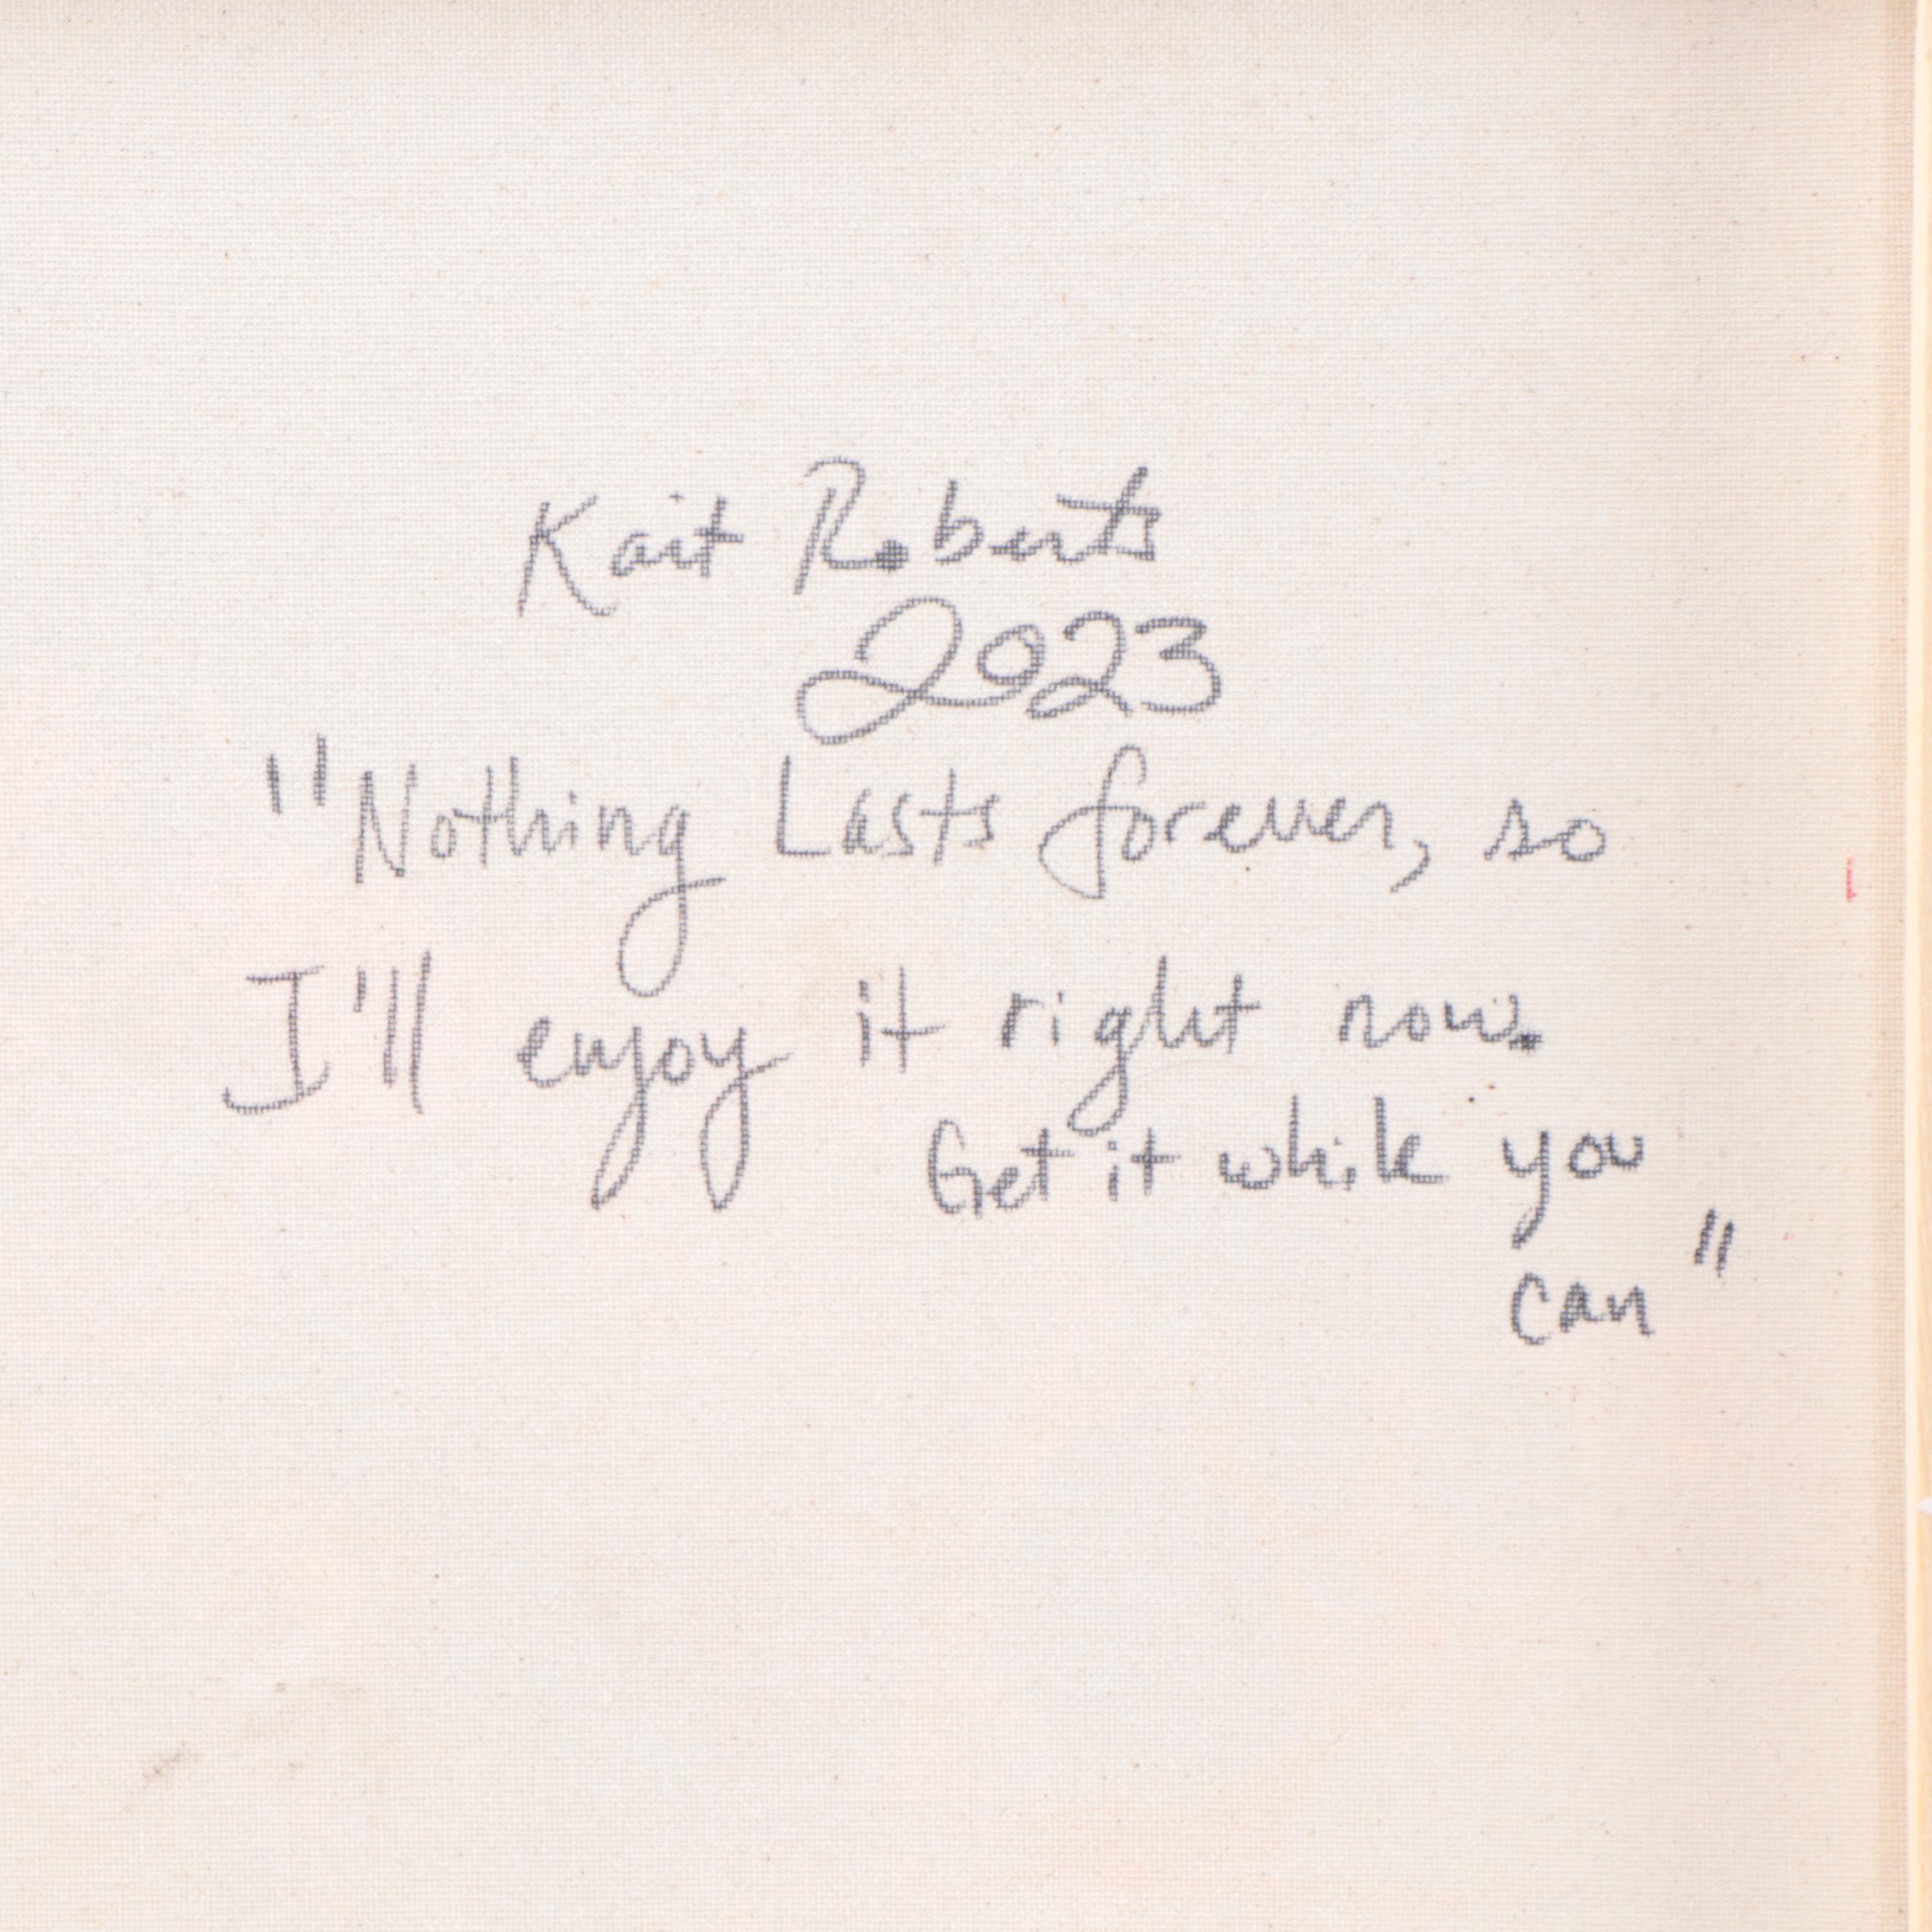 Kait Roberts
2023
"Nothing Lasts forever, so
I'll enjoy it right now.
Get it while you
can"